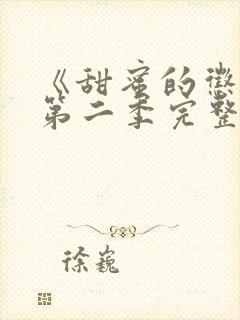 《甜蜜的惩
第二季完整
徐巍